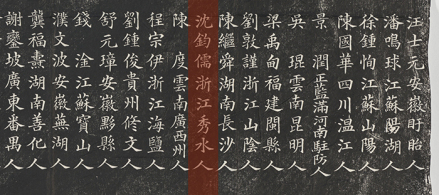 汪士元安徽盱眙人
潘鳴球江蘇陽湖人
徐鍾恂江蘇山陽人
陳國華四川溫江人
景潤正藍滿河南駐防人
吳琨雲南昆明人
梁禹甸福建閩縣人
劉敦謹浙江山陰人
陳繼舜湖南長沙人
沈鈞儒浙江秀水人
陳度雲南廣西州人
程宗伊浙江海鹽人
劉鍾俊貴州修文人
舒元璋安徽黟縣人
錢淦江蘇寶山人
濮文波安徽蕪湖人
龔福燾湖南善化人
謝鑾坡廣東番禺人